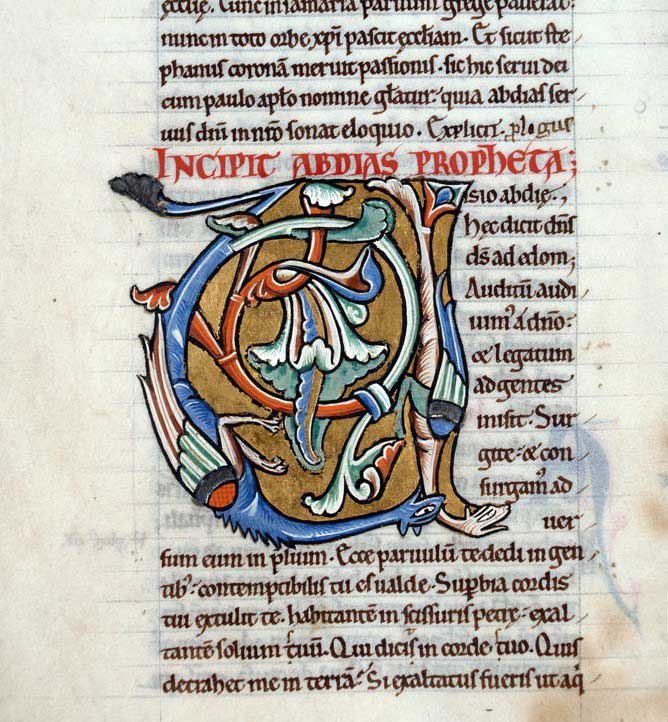 eccłię. Tunc in samaria paruum grege pauerat:
nunc in toto orbe xp̄i pascit ecclesiam. Et sicut ste
phanus coronā meruit passionis. sic hic serui dei
cum paulo ap̄lo nomine gl̄atur: quia abdias ser
uus dn̄i in nr̄o sonat eloquio. Explicit. p̄logus
INCIPIT ABDIAS PROPHETA;
Visio abdię.,
Hęc dicit dn̄s
ds̄ ad edom;
Auditū audi
uimꝰ a dn̄o:
& legatum
ad gentes
misit. Sur
gite: & con
surgamꝰ ad
uer
sum eum in p̄lium. Ecce paruulū te dedi in gen
tibꝰ: contemptibilis tu es ualde. Supbia cordis
tui extulit te. habitantē in scissuris petrę. exal
tantē solium tuū. Qui dicis in corde tuo. Quis
detrahet me in terrā? Si exaltatus fueris ut aq̄